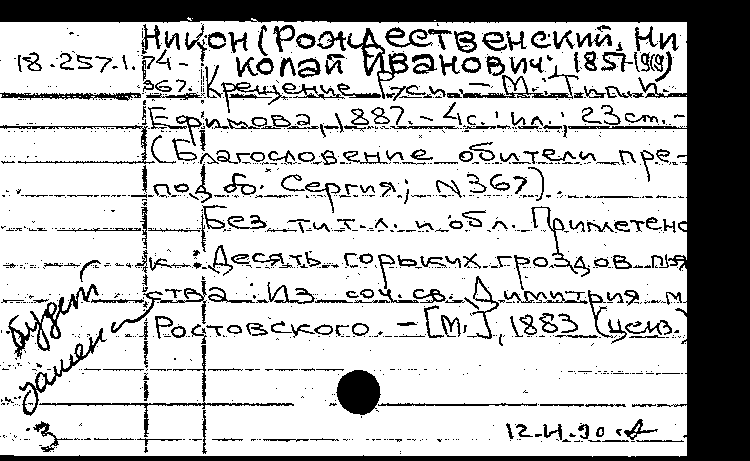 Никон (Рождественский, Ни
18.257.1.74-
колай Иванович; 1857-1919)
367. Крещение Руси. - М.: Тип. И.
Ефимова, 1887. - 4с.: ил.; 23см. -
(Благословение обители пре-
подоб. Сергия; N367).
Без тит.л. и обл. Приплетено
к: Десять горьких гроздов пья
ства. Из соч. св. Димитрия м
Ростовского. - [М.], 1883 (ценз.)
Будет
замена
3
12.